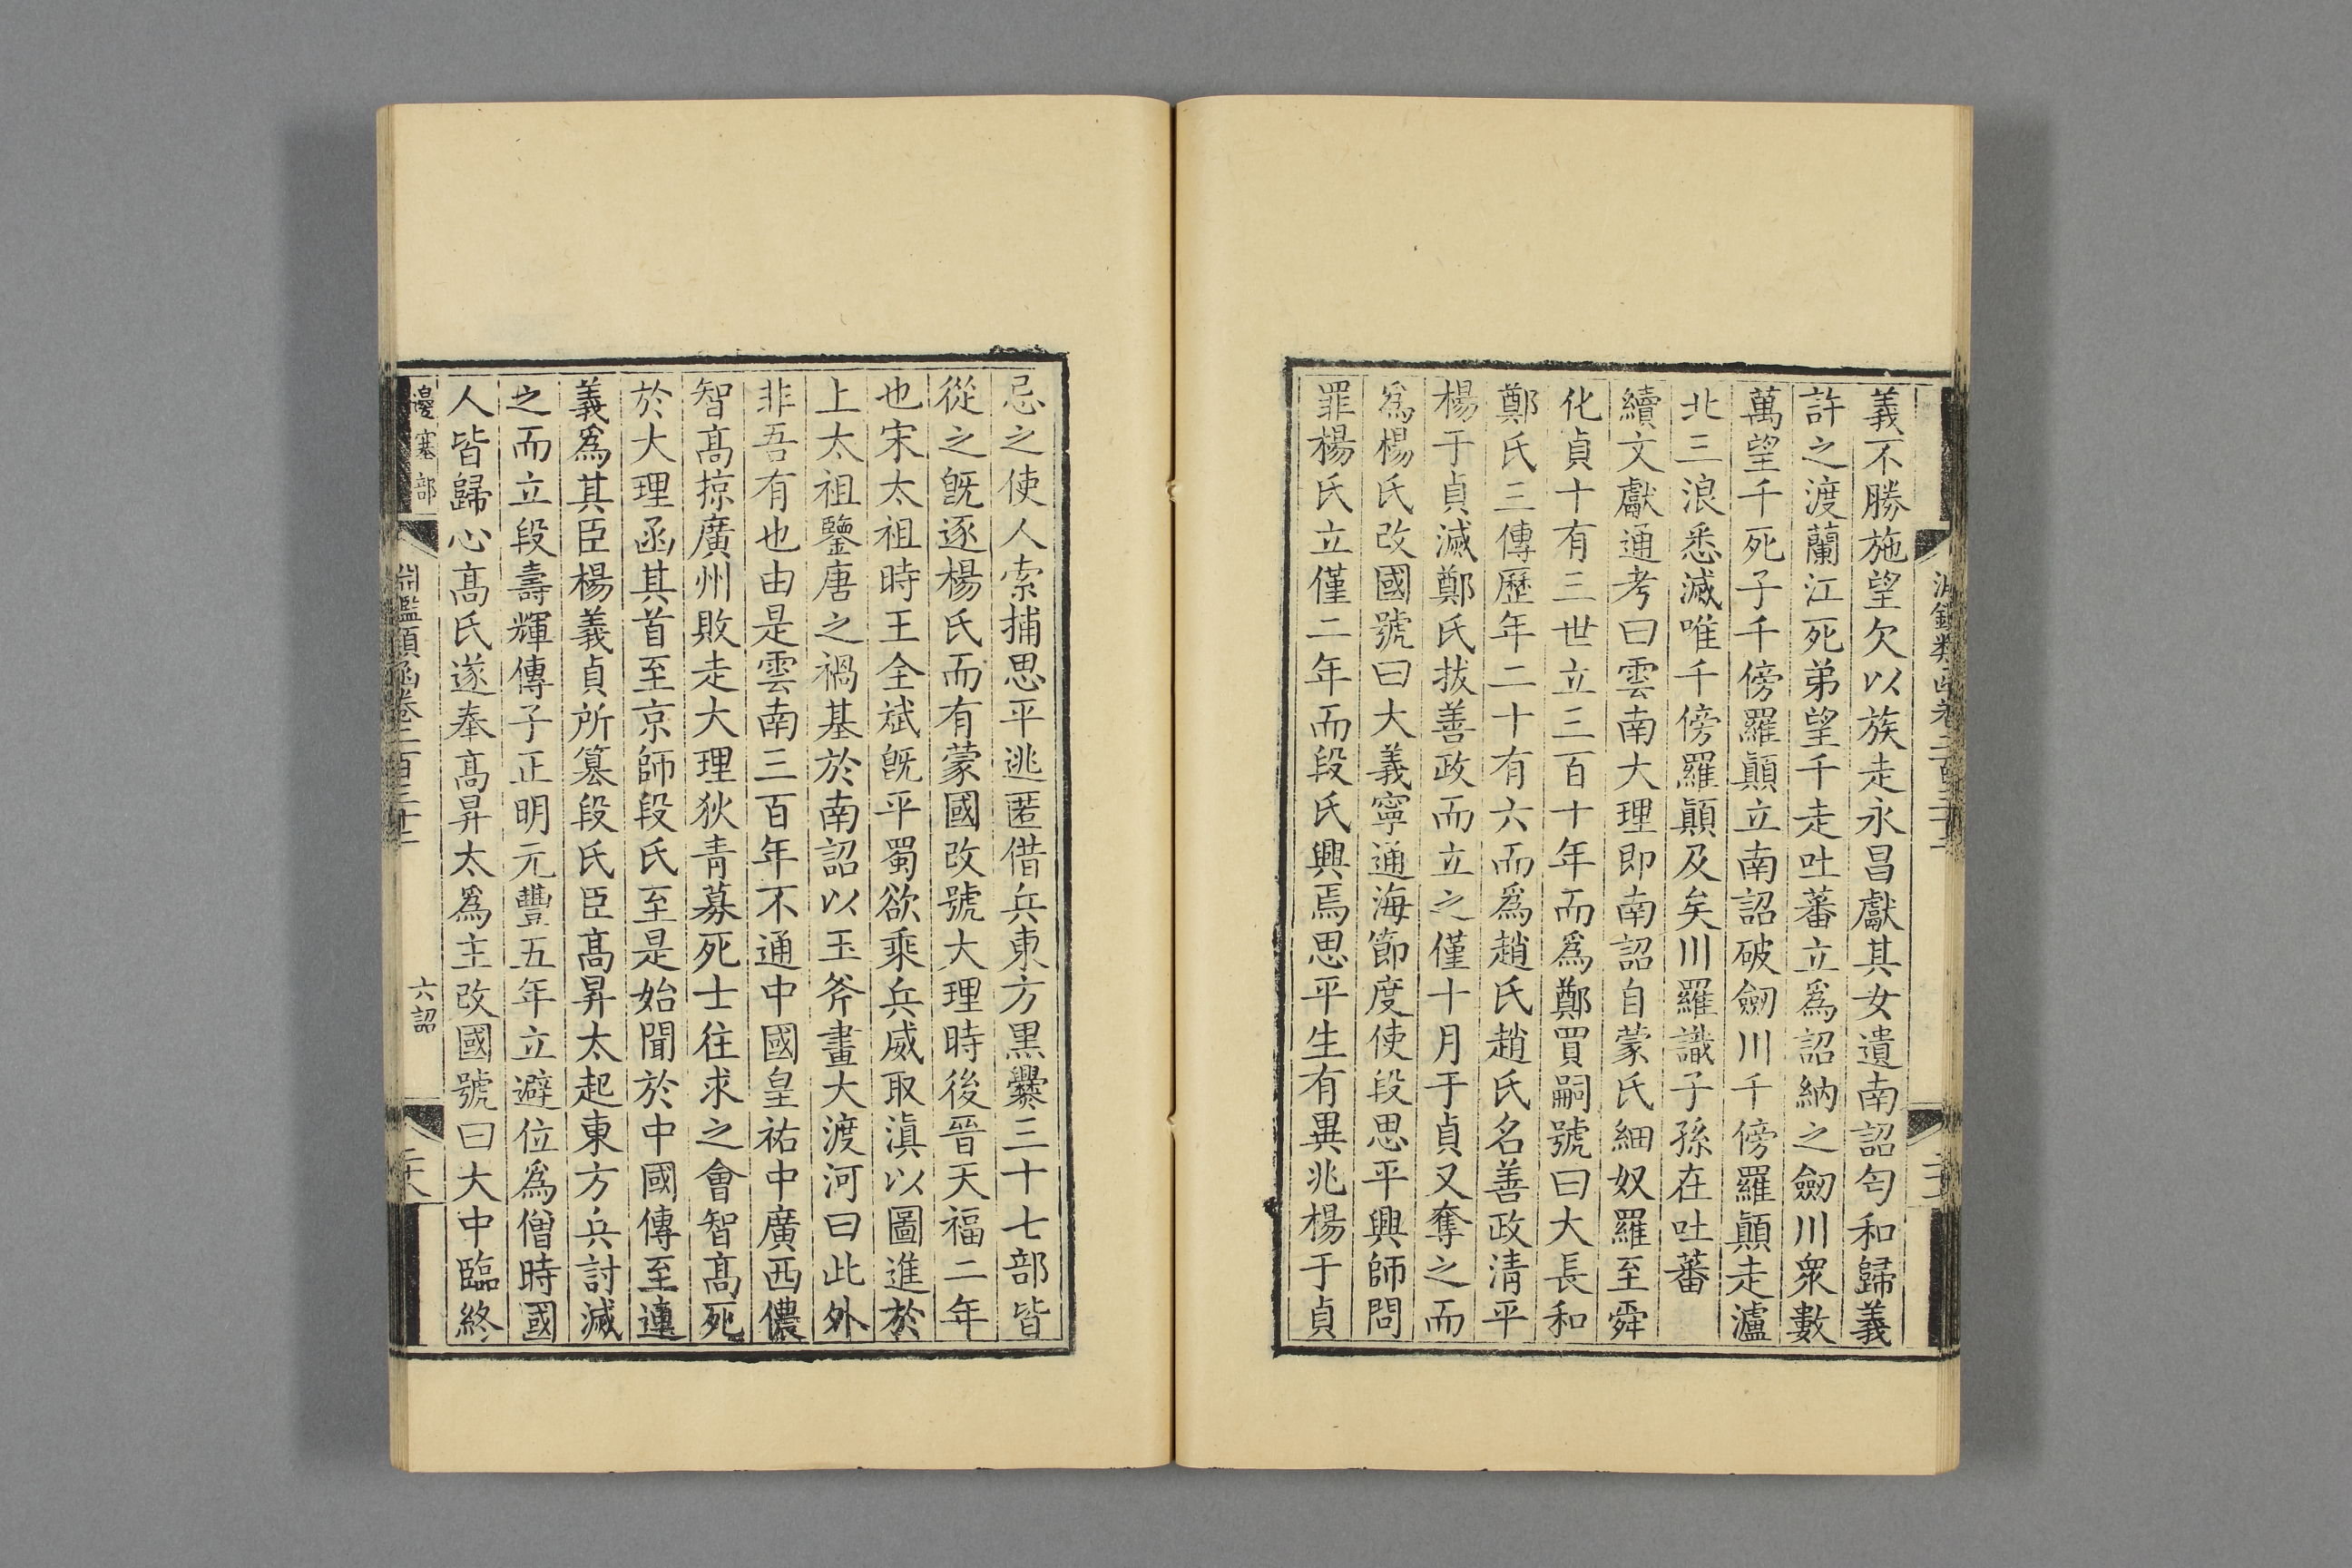 義不勝施望欠以族走永昌獻其女遺南詔匄和歸義
許之渡蘭江死弟望千走吐蕃立爲詔納之劒川衆數
萬望千死子千傍羅顚立南詔破劒川千傍羅顚走瀘
北三浪悉滅唯千傍羅顚及矣川羅識子孫在吐蕃
續文獻通考曰雲南大理即南詔自蒙氏細奴羅至舜
化貞十有三世立三百十年而爲鄭買嗣號曰大長和
鄭氏三傳歷年二十有六而爲趙氏趙氏名善政清平
楊于貞滅鄭氏拔善政而立之僅十月于貞又奪之而
爲楊氏改國號曰大義寧通海節度使段思平興師問
罪楊氏立僅二年而段氏興焉思平生有異兆楊于貞
忌之使人索捕思平逃匿借兵東方黑爨三十七部皆
從之旣逐楊氏而有蒙國改號大理時後晉天福二年
也宋太祖時王全斌旣平蜀欲乘兵威取滇以圖進於
上太祖鑒唐之禍基於南詔以玉斧畫大渡河曰此外
非吾有也由是雲南三百年不通中國皇祐中廣西儂
智高掠廣州敗走大理狄青募死士往求之會智高死
於大理函其首至京師段氏至是始聞於中國傳至連
義爲其臣楊義貞所簒段氏臣高昇太起東方兵討滅
之而立段壽輝傳子正明元豐五年立避位爲僧時國
人皆歸心高氏遂奉高昇太爲主改國號曰大中臨終
邊塞部
淵鑑類函卷二百三十二
六詔